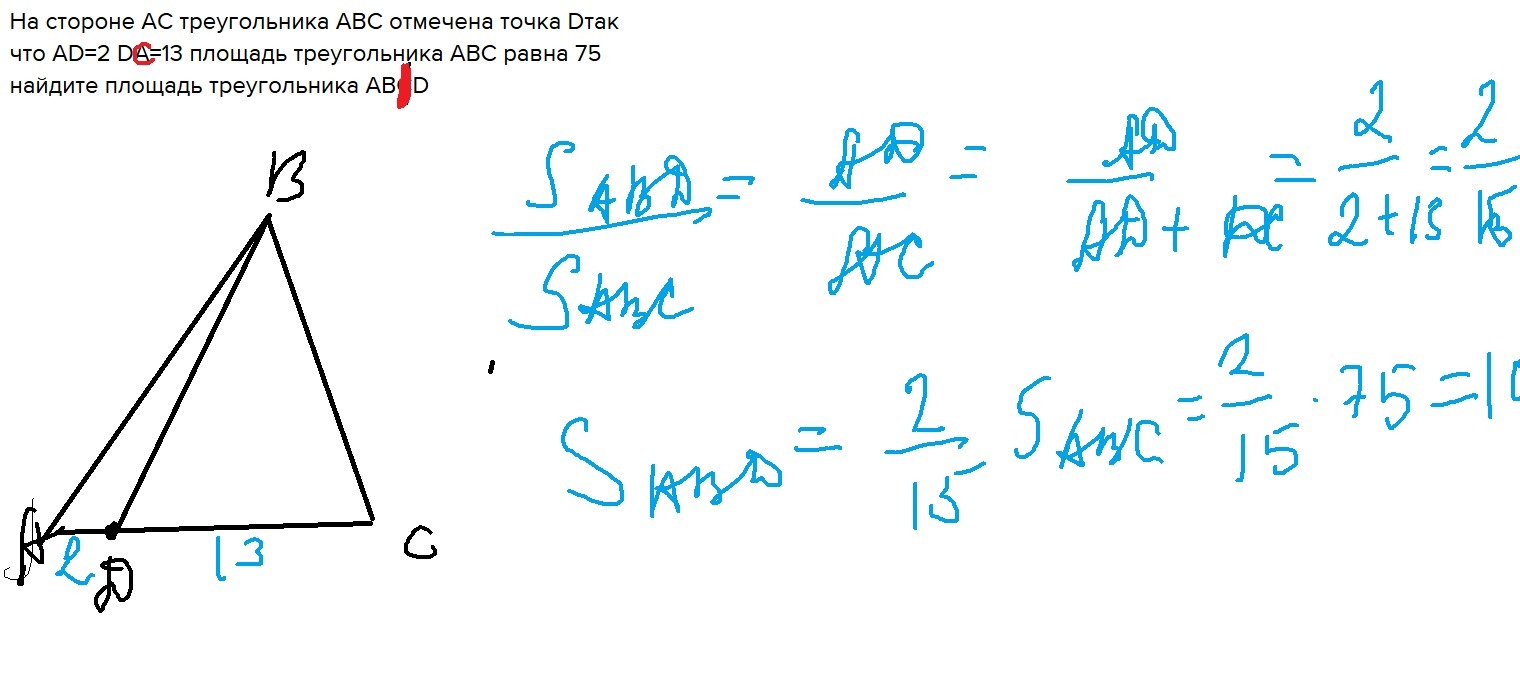 На стороне AC треугольника ABC отмечена точка Dтак
что AD=2 DC=13 площадь треугольника ABC равна 75
найдите площадь треугольника ABD
B
A
2
D
13
C
S ABD / S ABC = AD / AC = AD / AD + DC = 2 / 2+13 = 2 / 15
S ABD = 2 / 15 S ABC = 2 / 15 · 75 = 10